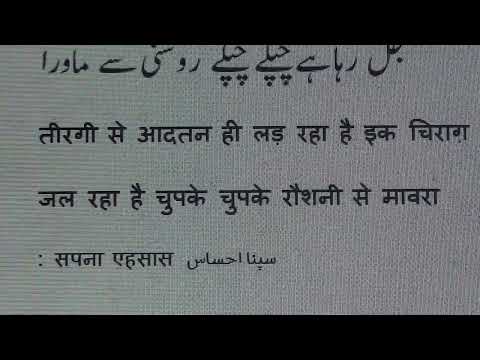 جل رہا ہے چپکے چپکے روشنی سے ماورا
तीरगी से आदतन ही लड़ रहा है इक चिराग़
जल रहा है चुपके चुपके रौशनी से मावरा
: सपना एहसास سپنا احساس